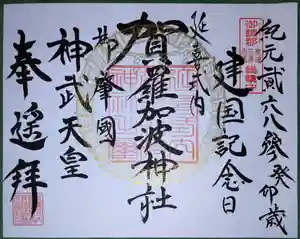 紀元貳六八参癸卯歳
建国記念日
延喜式内
賀羅加波神社
肇國
神武天皇
奉遥拝